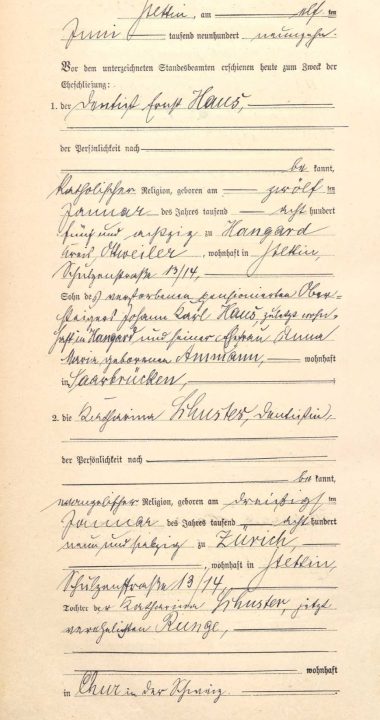 Stettin, am elf ten
Juni tausend neunhundert neunzehn.
Vor dem unterzeichneten Standesbeamten erschienen heute zum Zweck der
Eheschließung:
1. der Dentist Ernst Haus,
der Persönlichkeit nach
be kannt,
katholischer Religion, geboren am zwölf ten
Januar des Jahres tausend acht hundert
fünf und achtzig zu Hangard
Kreis Ottweiler, wohnhaft in Stettin,
Schulzenstraße 13/14,
Sohn des verstorbenen pensionierten Ober-
steigers Johann Karl Haus, zuletzt wohn-
haft in Hangard und seiner Ehefrau Anna
Maria geborenen Ammann, wohnhaft
in Saarbrücken,
2. die Katharina Schuster, Dentistin,
der Persönlichkeit nach
be kannt,
evangelischer Religion, geboren am dreißigs ten
Januar des Jahres tausend acht hundert
neun und siebzig zu Zürich,
, wohnhaft in Stettin,
Schulzenstraße 13/14,
Tochter der Katharina Schuster, jetzt
verehelichten Runge,
wohnhaft
in Chur in der Schweiz.